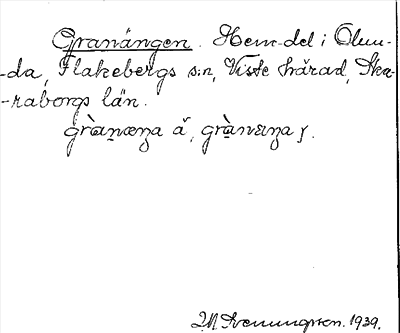 Granängen. Hem-del i Olun-
-da, Flakebergs s:n, Viste härad, Ska-
-raborgs län.
grànæŋa ǎ, grànæŋa
1939.